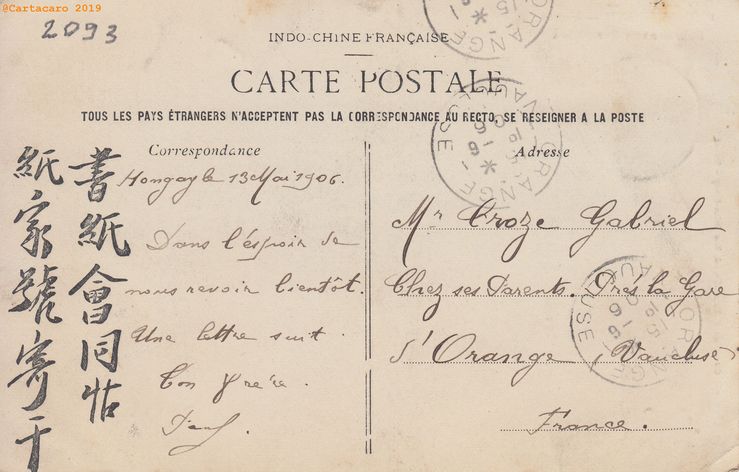 @Cartacaro 2019
2093
INDO-CHINE FRANÇAISE
CARTE POSTALE
TOUS LES PAYS ÉTRANGERS N'ACCEPTENT PAS LA CORRESPONDANCE AU RECTO, SE RESEIGNER A LA POSTE
Correspondance
Hongay le 13 Mai 1906.
Dans l'éspoir de
nous revoir bientôt.
Une lettre suit.
Ton frère
書紙會同帖
紙家號寄于
Adresse
Mr Croze Gabriel
Chez ses Parents. Près la Gare
d'Orange (Vaucluse)
France.
ORANGE
VAUCLUSE
ORANGE
VAUCLUSE
ORANGE
VAUCLUSE